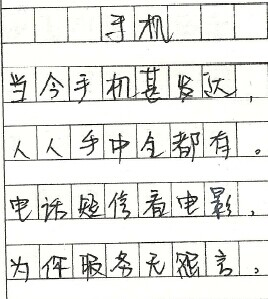 手机
当今手机甚发达，
人人手中全都有。
电话短信看电影，
为你服务无怨言。